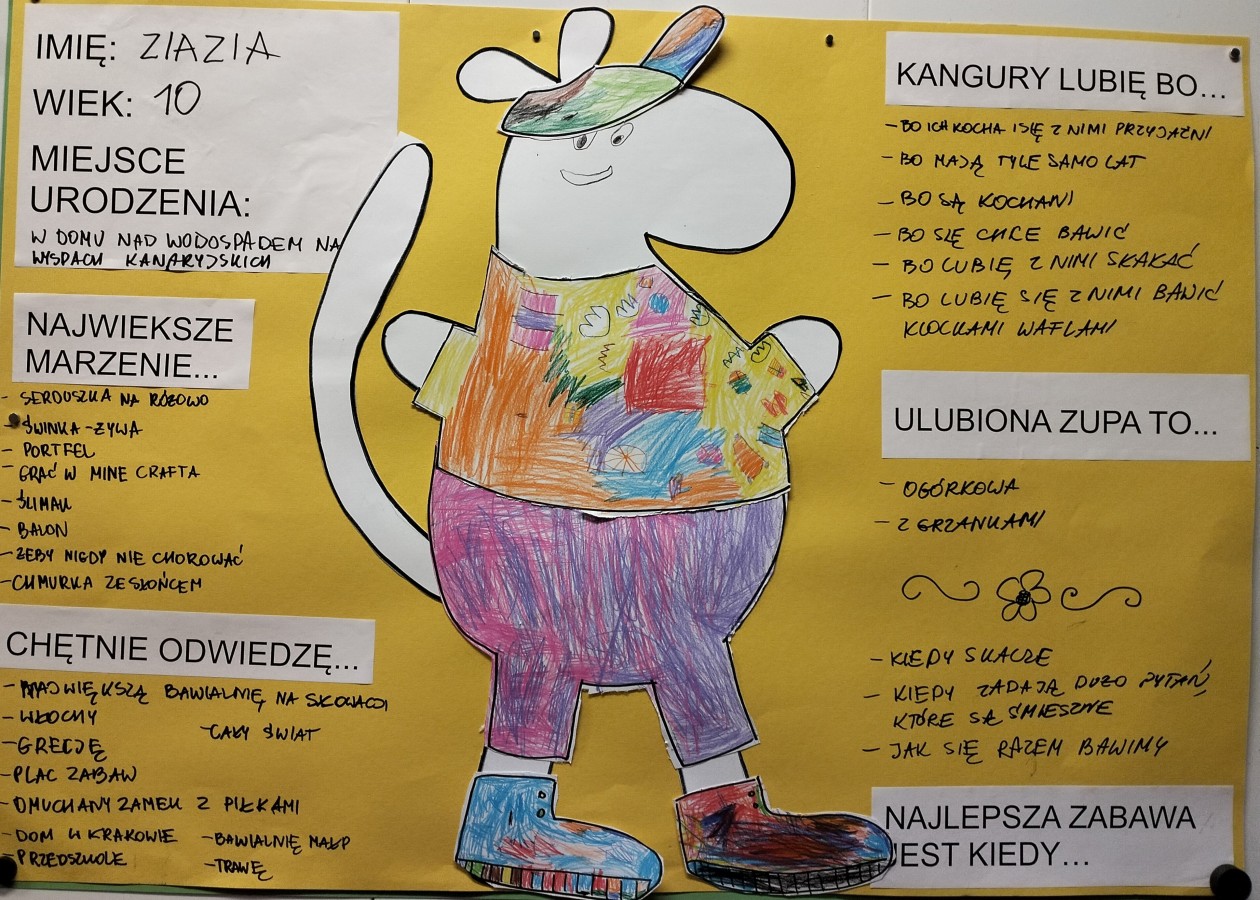 IMIĘ: ZIAZIA
WIEK: 10
MIEJSCE
URODZENIA:
W DOMU NAD WODOSPADEM NA
WYSPACH KANARYJSKICH
NAJWIEKSZE
MARZENIE...
- SERDUSZKA NA RÓŻOWO
- ŚWINKA - ŻYWA
- PORTFEL
- GRAĆ W MINE CRAFTA
- ŚLIMAK
- BALON
- ŻEBY NIGDY NIE CHOROWAĆ
- CHMURKA ZE SŁOŃCEM
CHĘTNIE ODWIEDZĘ...
- NAJWIĘKSZĄ BAWIALNIĘ NA SŁOWACJI
- WŁOCHY
- CAŁY ŚWIAT
- GRECJĘ
- PLAC ZABAW
- DMUCHANY ZAMEK Z PIŁKAMI
- DOM W KRAKOWIE
- BAWIALNIĘ MAŁP
- PRZEDSZKOLE
- TRAWĘ
KANGURY LUBIĘ BO...
- BO ICH KOCHA I SIĘ Z NIMI PRZYJAŹNI
- BO MAJĄ TYLE SAMO LAT
- BO SĄ KOCHANI
- BO SIĘ CHCE BAWIĆ
- BO LUBIĘ Z NIMI SKAKAĆ
- BO LUBIĘ SIĘ Z NIMI BAWIĆ
KLOCKAMI WAFLAMI
ULUBIONA ZUPA TO...
- OGÓRKOWA
- Z GRZANKAMI
- KIEDY SKACZE
- KIEDY ZADAJĄ DUŻO PYTAŃ,
KTÓRE SĄ ŚMIESZNE
- JAK SIĘ RAZEM BAWIMY
NAJLEPSZA ZABAWA
JEST KIEDY...